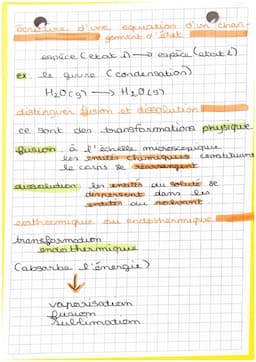 écriture d'une equation d'un chan-
gement d'état
espèce (etat 1) → espèce (etat 2)
ex: le givre (condensation)
H₂O(g) → H₂O(s)
distinguer fusion et dissolution
ce sont des transformations physique
fusion: à l'échelle microscopique
les entités chimiques constituant
le corps se réarrangent
dissolution: les entités du soluté se
dispersent dans les
entités du solvant
exothermique ou endothermique
transformation
endothermique
(absorbe l'énergie)
↓
vaporisation
fusion
sublimation